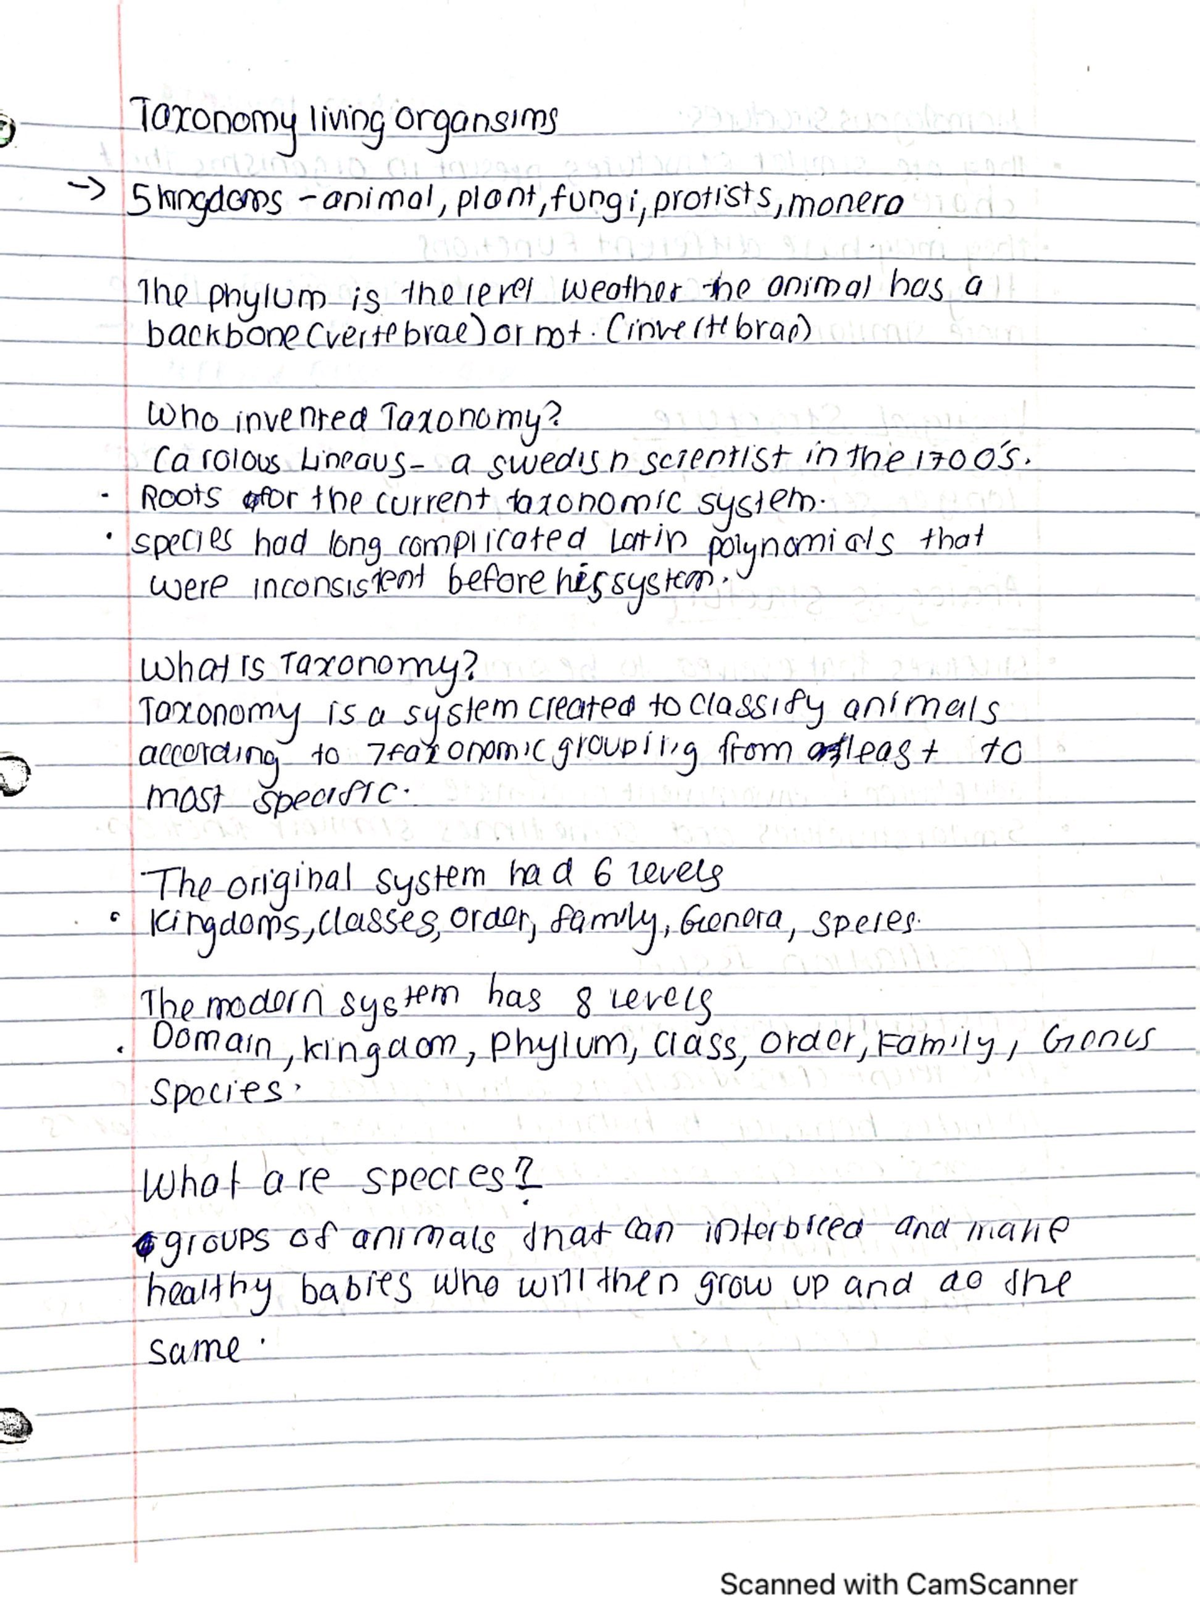 Taxonomy living organsims
→ 5 kingdoms - animal, plant, fungi, protists, monera
The phylum is the level weather the animal has a
backbone (vertebrae) or not. (invertebrae)
Who invented Taxonomy?
Carolous Lineaus - a swedish scientist in the 1700's.
• Roots for the current taxonomic system.
• species had long complicated Latin polynomials that
were inconsistent before his system.
What is Taxonomy?
Taxonomy is a system created to classify animals
according to 7 taxonomic grouping from least to
most specific.
The original system had 6 levels
• kingdoms, classes, order, family, Genera, speies.
The modern system has 8 levels
• Domain, kingdom, phylum, class, order, Family, Genus
species.
What are species?
• groups of animals that can interbreed and make
healthy babies who will then grow up and do the
same.
Scanned with CamScanner